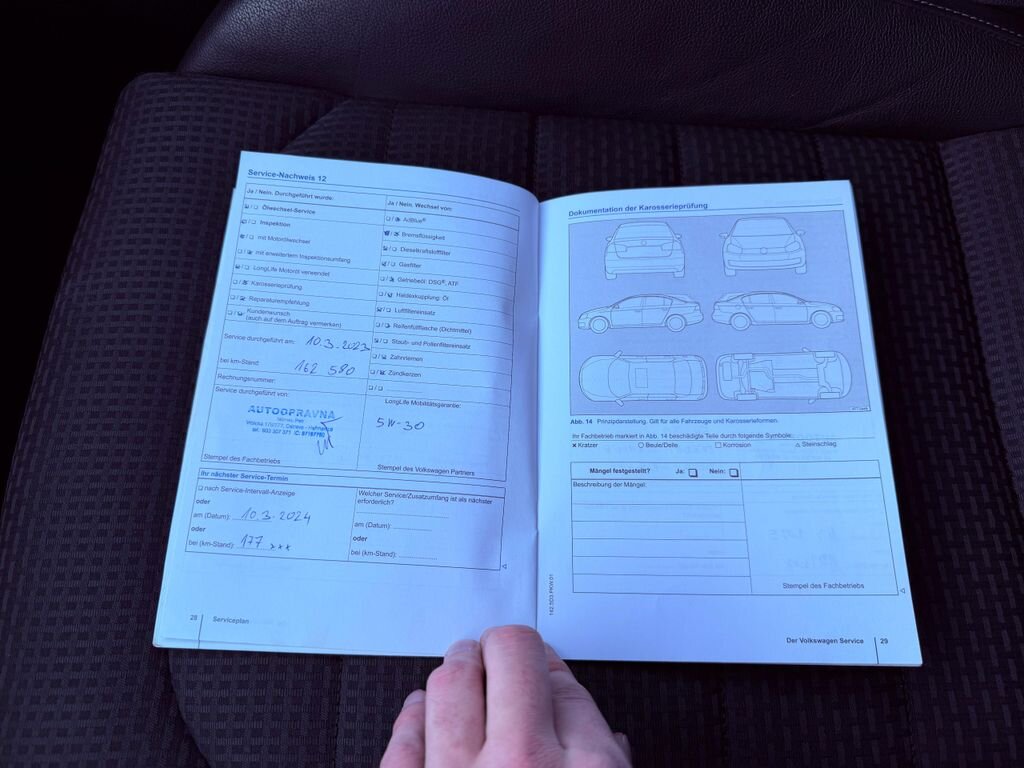 Service-Nachweis 12
Ja / Nein. Durchgeführt wurde:
Ölwechsel-Service
Inspektion
mit Motorölwechsel
mit erweitertem Inspektionsumfang
LongLife Motoröl verwendet
Karosserieprüfung
Reparaturempfehlung
Kundenwunsch
(auch auf dem Auftrag vermerken)
Service durchgeführt am: 10.3.2023
bei km-Stand: 162 580
Rechnungsnummer:
Service durchgeführt von:
AUTOOPRAVNA
Stempel des Fachbetriebs
Ja / Nein. Wechsel von:
AdBlue®
Bremsflüssigkeit
Dieselkraftstofffilter
Gasfilter
Getriebeöl: DSG®, ATF
Haldexkupplung: Öl
Luftfiltereinsatz
Reifenfüllflasche (Dichtmittel)
Staub- und Pollenfiltereinsatz
Zahnriemen
Zündkerzen
LongLife Mobilitätsgarantie:
5W-30
Stempel des Volkswagen Partners
Ihr nächster Service-Termin
nach Service-Intervall-Anzeige
oder
am (Datum): 10.3.2024
oder
bei (km-Stand): 177 xxx
Welcher Service/Zusatzumfang ist als nächster
erforderlich?
am (Datum):
oder
bei (km-Stand):
28 Serviceplan
Dokumentation der Karosserieprüfung
Abb. 14 Prinzipdarstellung. Gilt für alle Fahrzeuge und Karosserieformen.
Ihr Fachbetrieb markiert in Abb. 14 beschädigte Teile durch folgende Symbole:
Kratzer Beule/Delle Korrosion Steinschlag
Mängel festgestellt? Ja: Nein:
Beschreibung der Mängel:
Stempel des Fachbetriebs
142.5D3.PKW.01
Der Volkswagen Service 29